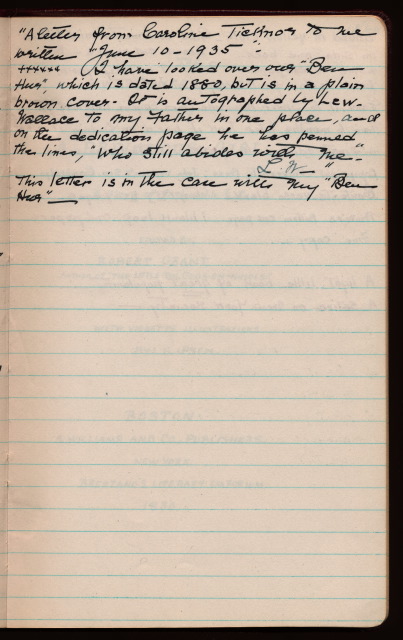 "A letter from Caroline Ticknor to me
written "June 10-1935":
++++++ I have looked over our "Ben
Hur", which is dated 1880, but is in a plain
brown cover. It is autographed by Lew-
Wallace to my father in one place, and
on the dedication page he has penned
the lines, "Who still abides with me."
L. W. "
This letter is in the case with my "Ben
Hur"